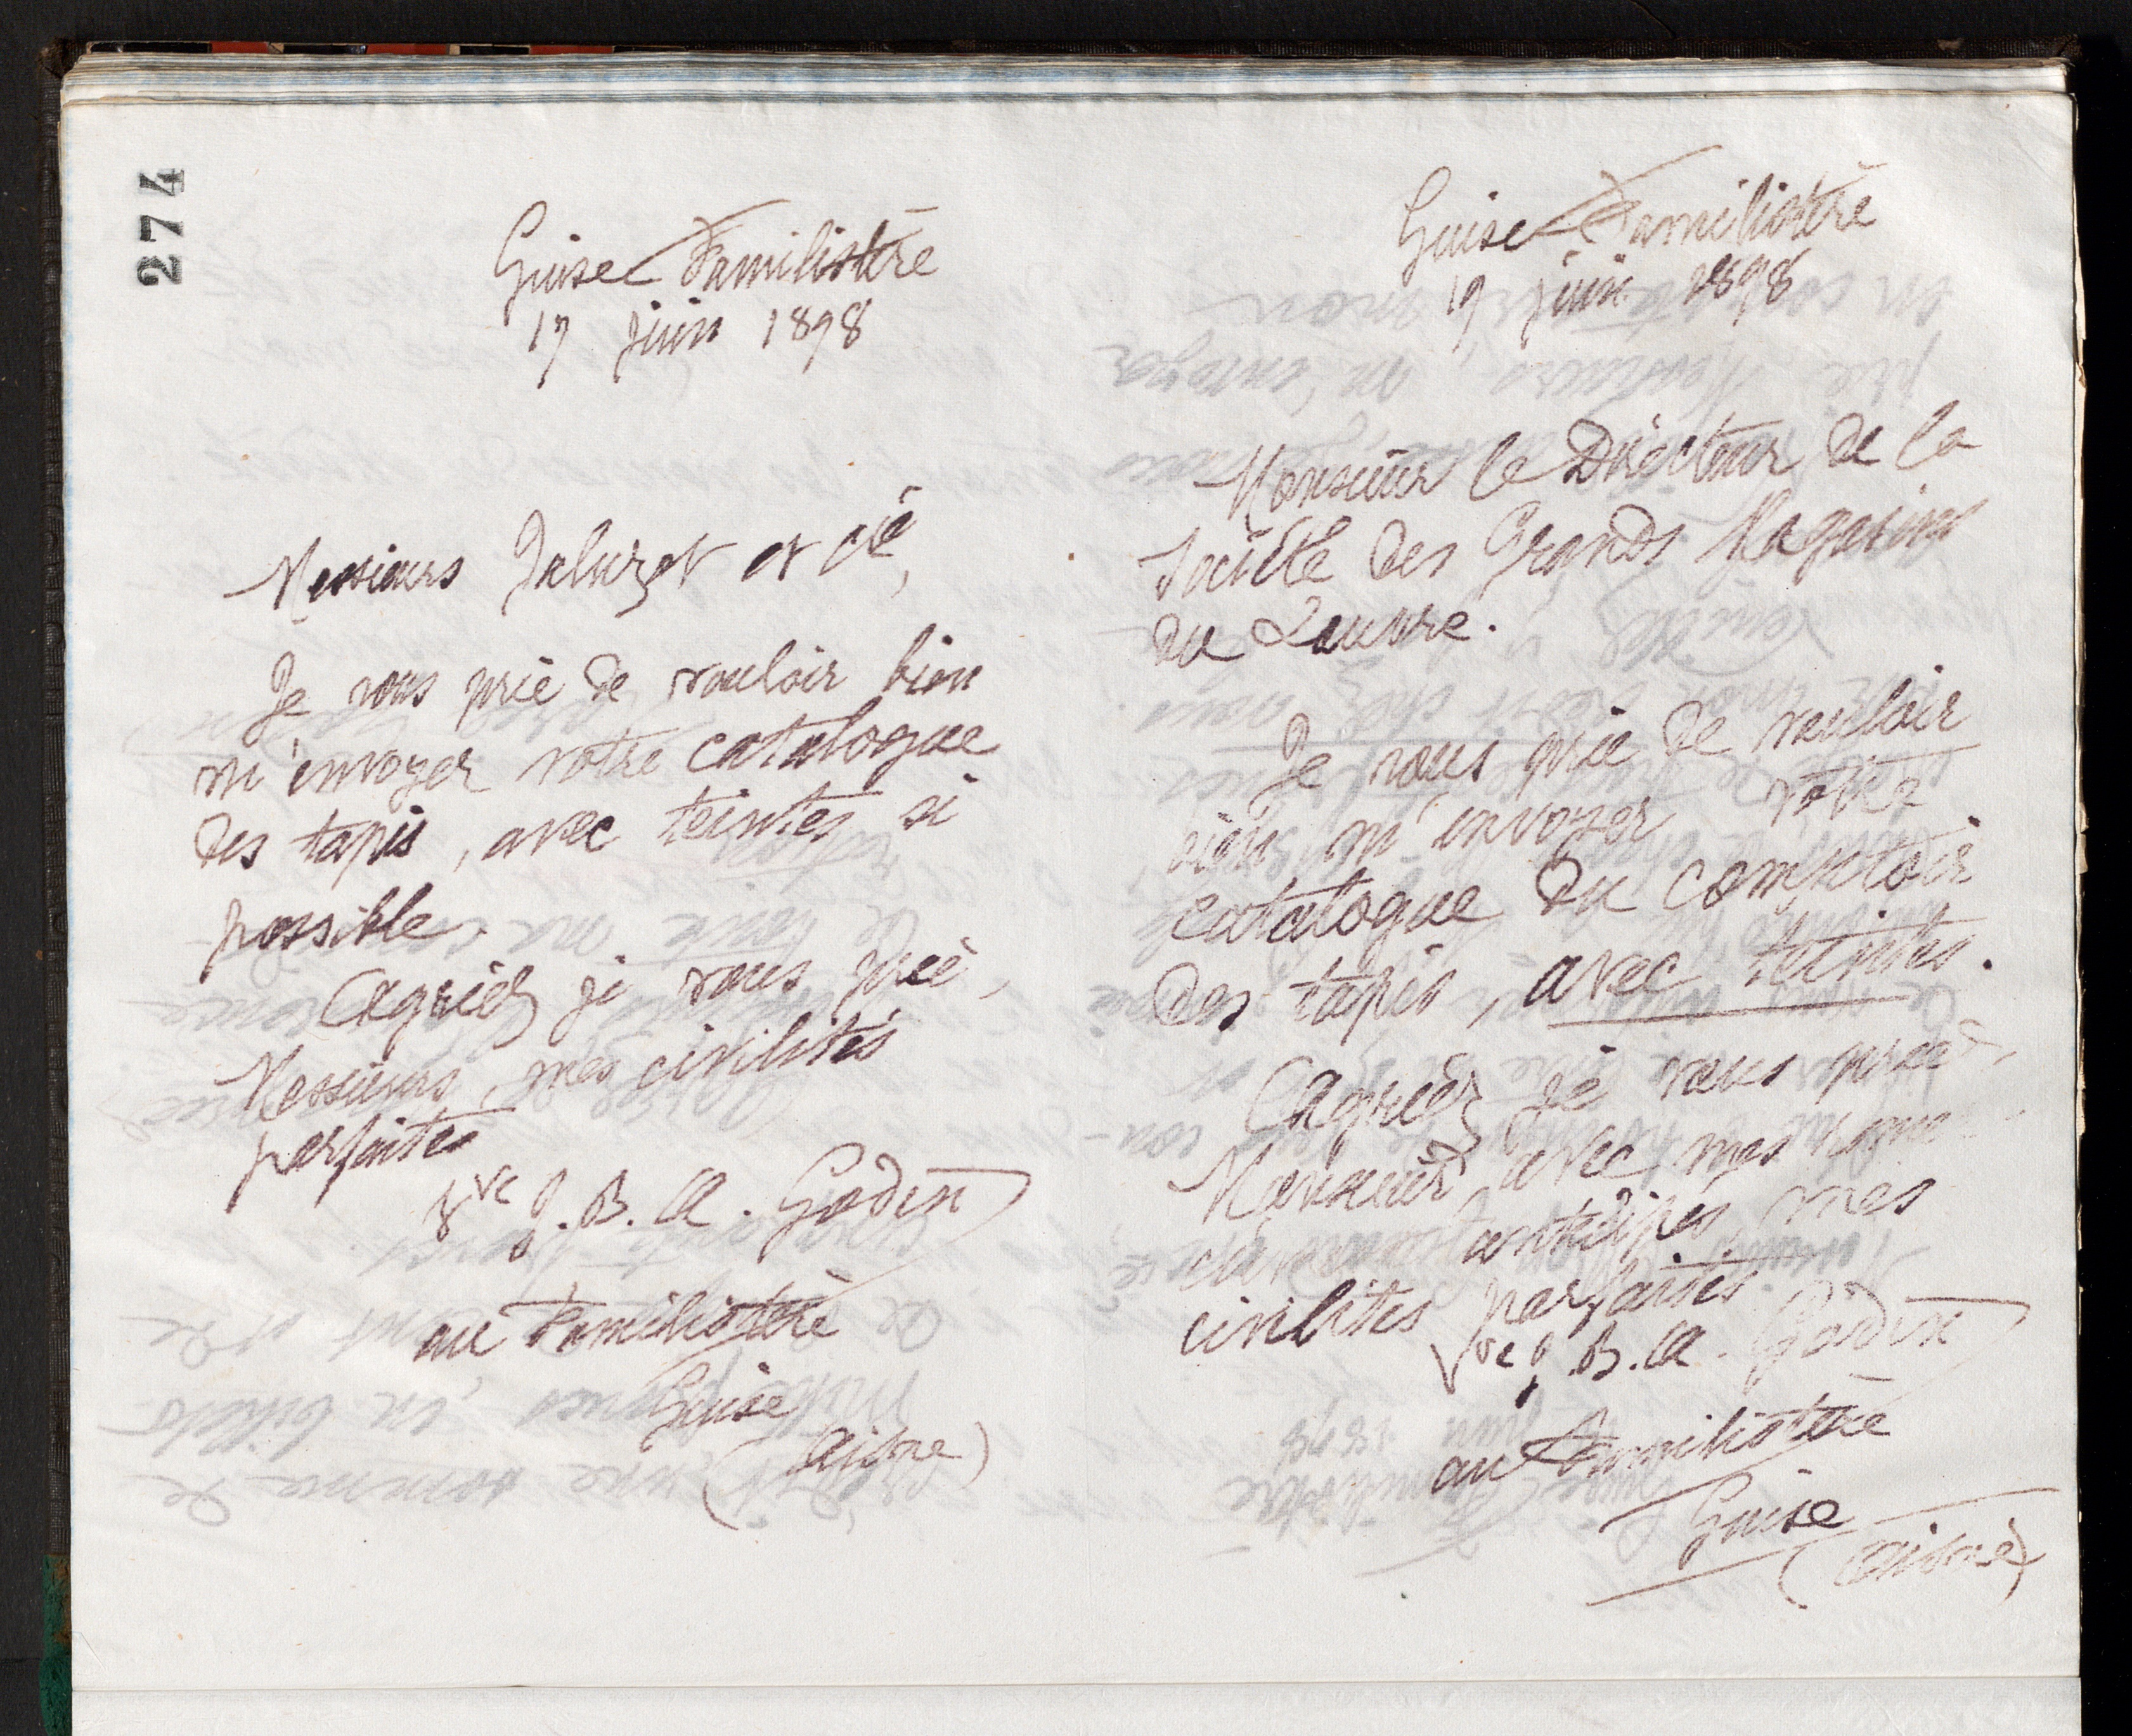 274
Guise Familistère
17 juin 1898
Messieurs Jaluzot et cie,
Je vous prie de vouloir bien
m'envoyer votre catalogue
des tapis, avec teintes si
possible.
Agréez je vous prie,
Messieurs, mes civilités
parfaites
Vve J. B. A. Godin
au Familistère
Guise
(Aisne)
Guise Familistère
17 juin 1898
Monsieur le Directeur de la
Société des Grands Magasins
du Louvre.
Je vous prie de vouloir
bien m'envoyer votre
catalogue du comptoir
des tapis, avec teintes.
Agréez je vous prie,
Monsieur avec mes remer-
ciements anticipés, mes
civilités parfaites
Vve J. B. A. Godin
au Familistère
Guise
(Aisne)